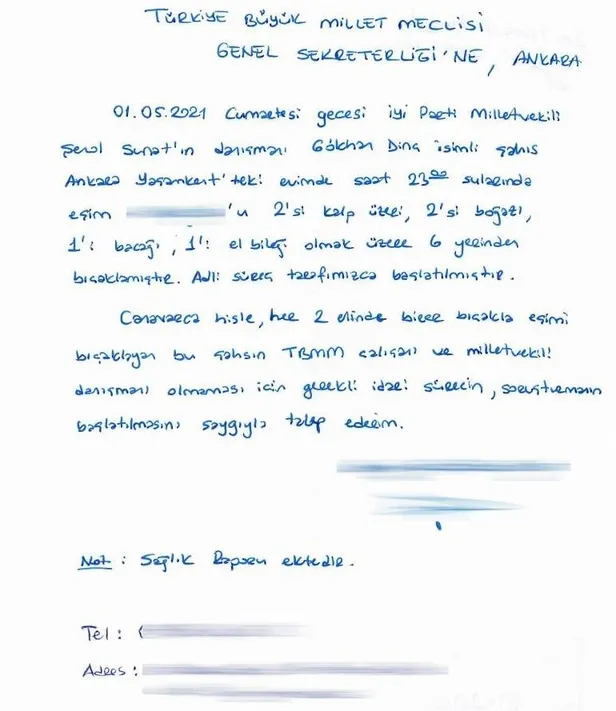 TÜRKİYE BÜYÜK MİLLET MECLİSİ
GENEL SEKRETERLİĞİ'NE, ANKARA
01.05.2021 Cumartesi gecesi İyi Parti Milletvekili
Şenol Sunat'ın danışmanı Gökhan Dinç isimli şahıs
Ankara Yaşamkent'teki evimde saat 23⁰⁰ sularında
eşim 'u 2'si kalp üzeri, 2'si boğazı,
1'i bacağı, 1'i el bileği olmak üzere 6 yerinden
bıçaklamıştır. Adli süreç tarafımızca başlatılmıştır.
Canavarca hisle, her 2 elinde birer bıçakla eşimi
bıçaklayan bu şahsın TBMM çalışanı ve milletvekili
danışmanı olmaması için gerekli idari sürecin, soruşturmanın
başlatılmasını saygıyla talep ederim.
Not : Sağlık Raporu ektedir.
Tel : (
Adres :